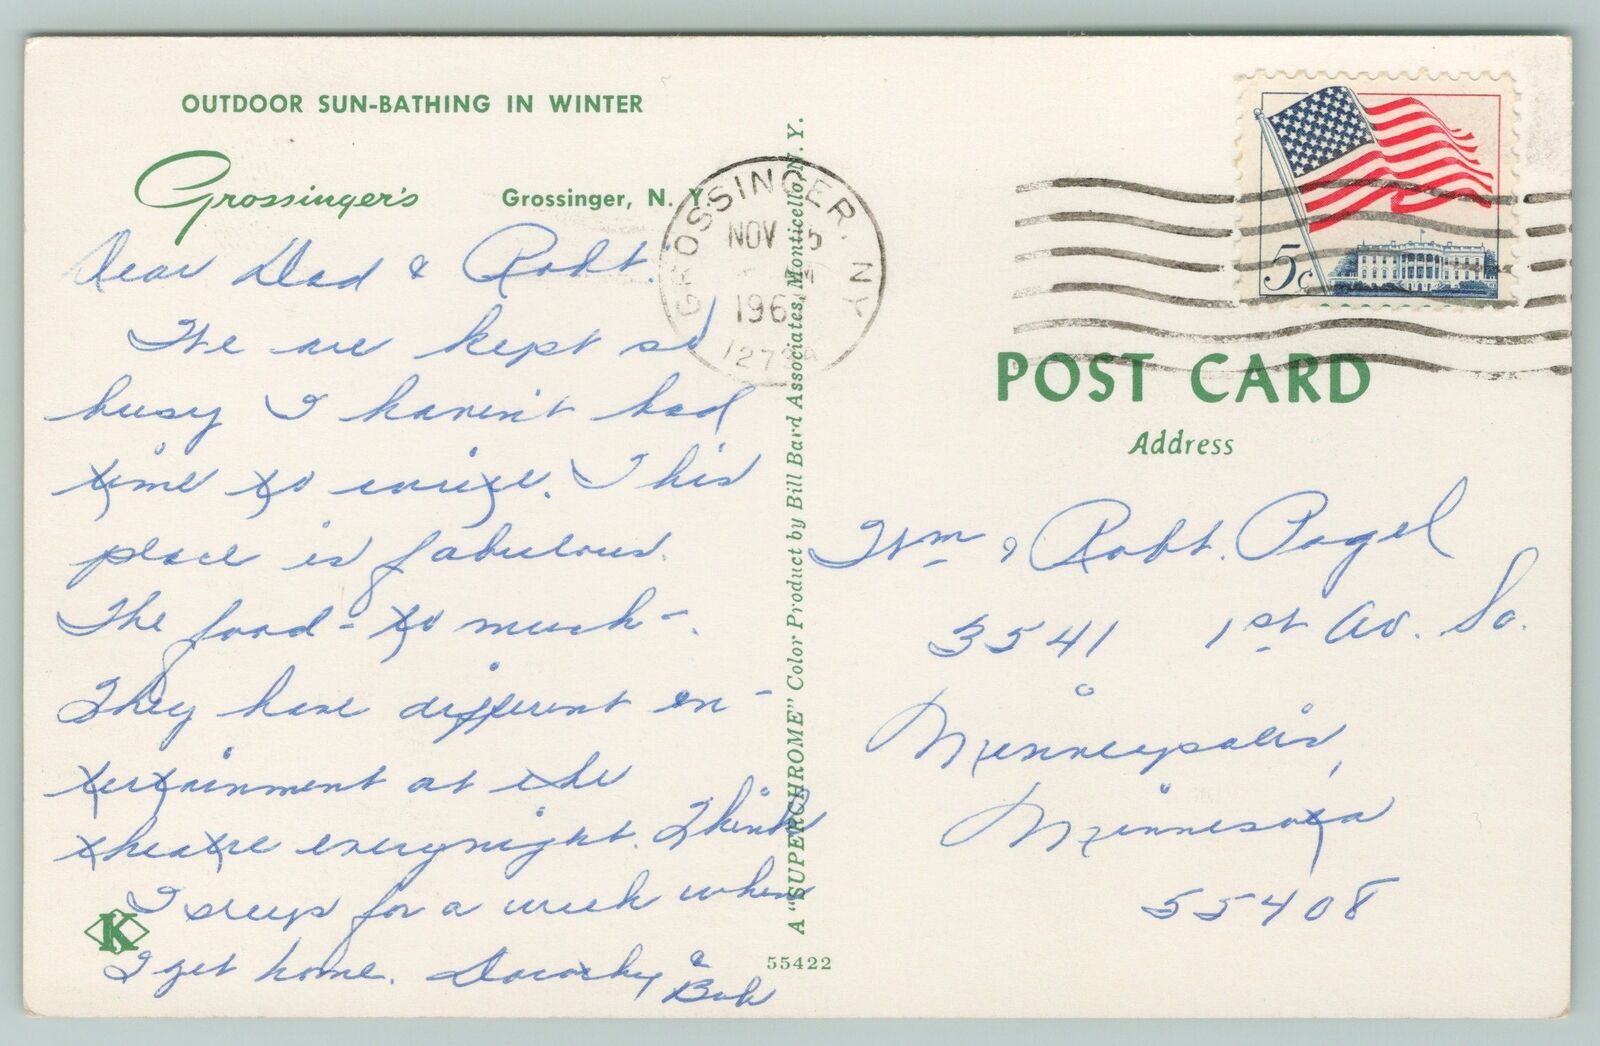 OUTDOOR SUN-BATHING IN WINTER
Grossinger's Grossinger, N. Y.
Dear Dad & Robt.
We are kept so
busy I haven't had
time to write. This
place is fabulous.
The food - to much -.
They have different en-
tertainment at the
theatre everynight. Think
I sleep for a week when
I get home. Dorothy &
Bob
K
A "SUPERCHROME" Color Product by Bill Bard Associates, Monticello, N. Y.
55422
GROSSINGER, N.Y.
NOV
196
5c
POST CARD
Address
Wm & Robt. Pagel
3541 1st Av. So.
Minneapolis,
Minnesota
55408